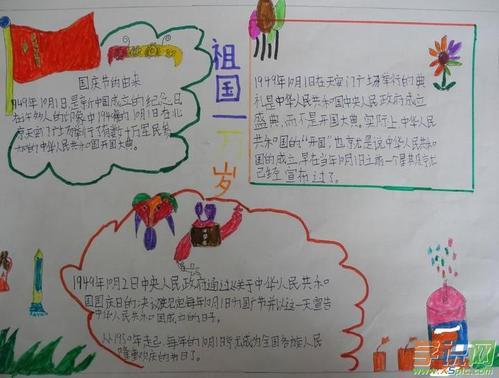 国庆节的由来
1949年10月1日是新中国成立的纪念日
在许多人的印象中1949年的10月1日在北
京天安门广场举行了有数十万军民参
加的中华人民共和国开国大典。
祖国万岁
1949年10月1日在天安门广场举行的典
礼是中华人民共和国中央人民政府成立
盛典,而不是开国大典。实际上中华人民
共和国的“开国”也就是说中华人民共和
国的成立,早在当年10月1日之前一个星
已经宣布过了。
1949年10月2日中央人民政府通过《关于中华人民共和
国国庆日的决议》规定每年10月1日为国庆节并以这一天宣告
中华人民共和国成立的日子。
从1950年起,每年的10月1日就成为全国各族人民
隆重欢庆的节日了。
学识网